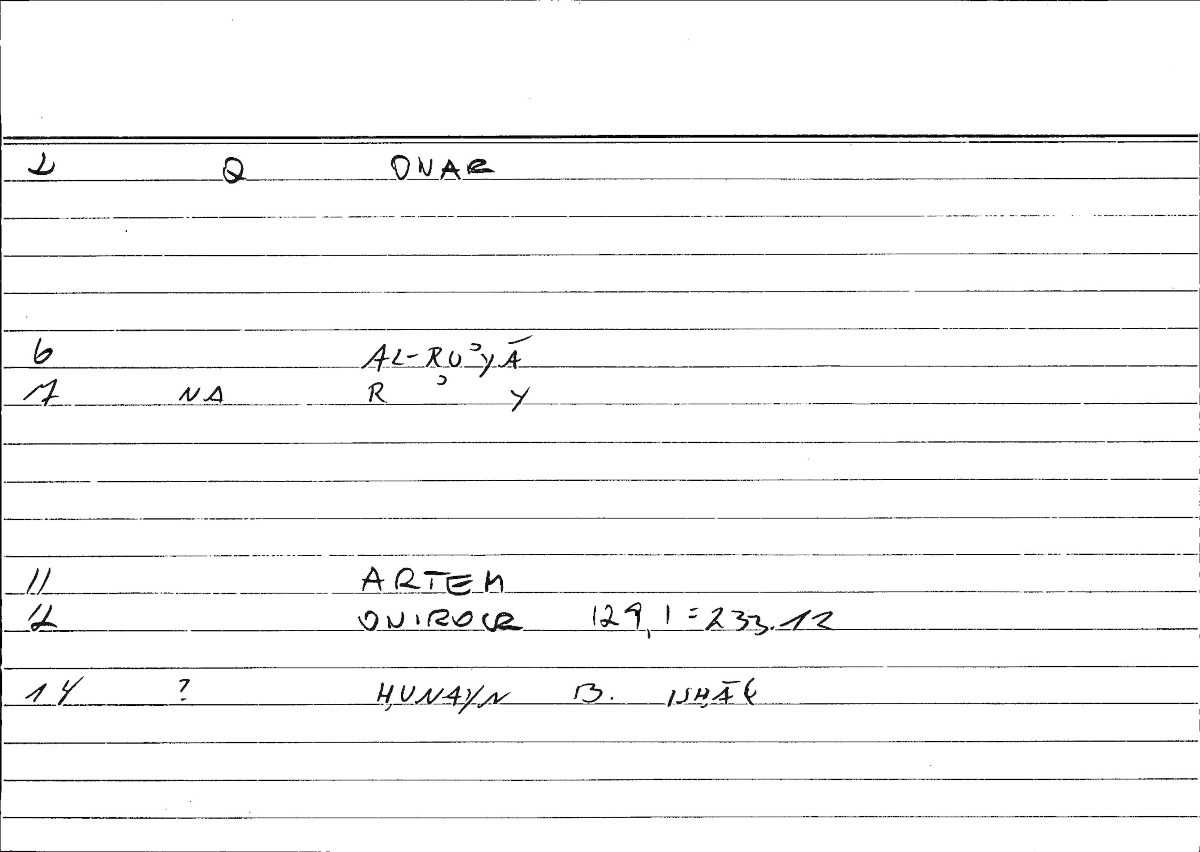 2 Q ONAR
6 AL-RUʾYĀ
7 NA R ʾ Y
11 ARTEM
12 ONIROCR 129,1=233.12
14 ? ḤUNAYN B. ISḤĀQ